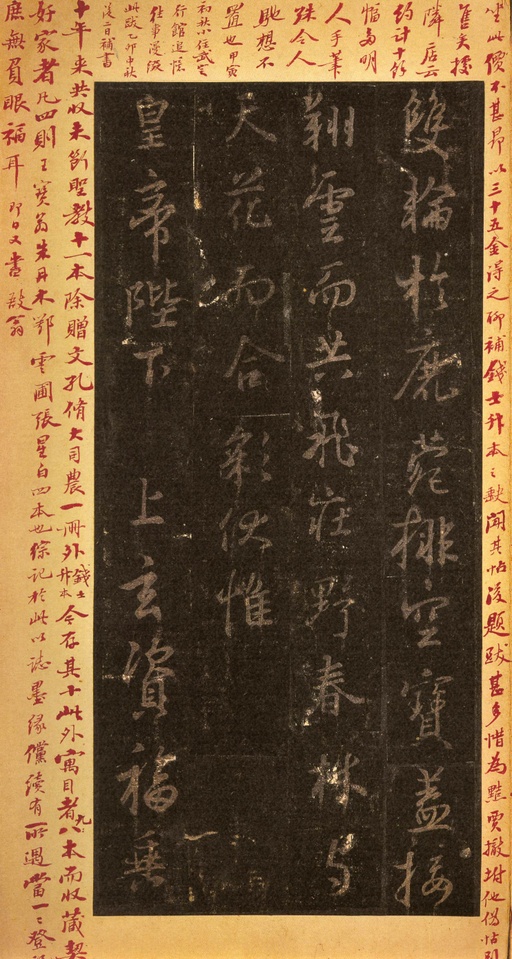 坐此價不甚昂以三十五金得之聊補錢士升本之缺聞其帖後題跋甚多惜為黠賈撤坿他偽帖
售矣據
隣店云
約計十餘
幅多明
人手筆
殊令人
馳想不
置也甲寅
初秋小住武定
行館追憶
往事漫綴
此跋乙卯中秋
後二日補書
雙輪於鹿菀排空寶蓋接
翔雲而共飛莊野春林与
天花而合彩伏惟
皇帝陛下 上玄資福垂
十年來共收未斷聖教十一本除贈文孔脩大司農一冊外錢士升本今存其十此外寓目者八九本而收藏契
好家者凡四則王寶翁朱丹木鄂雲圃張星白四本也綜記於此以誌墨緣儻續有所遇當一一登
庶無負眼福耳即日又書毅翁